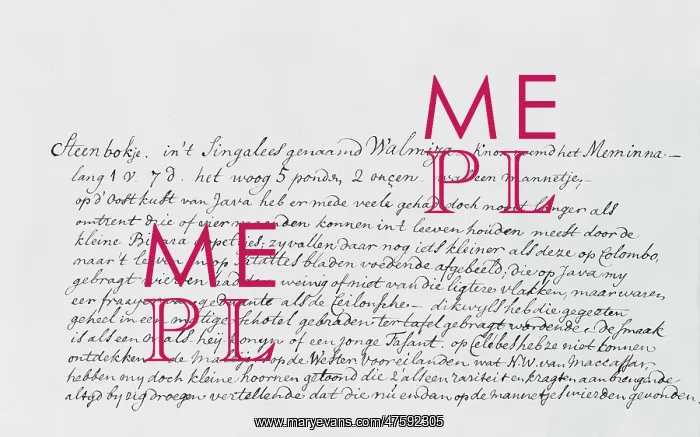 Steenbokje. in't Singalees genaamd Walmiga Knox noemd het Meminna.—
lang 1 v. 7 d. het woog 5 ponden, 2 oncen. was een mannetje,-
op d'Oost kust van Java heb er mede veele gehad doch nooit langer als
omtrent drie of vier maanden konnen in't leeven houden meest door de
kleine zy vallen daar nog iets kleiner als deze op Colombo,
maar't bladen voedende afgebeeld, die op Java my
gebragt wierden hadden weinig of niet van die ligtere vlakken, maar waren
een fraaye als de Ceilonsche— dikwyls heb die gegeten
geheel in een schotel gebraden ter tafel gebragt wordende de smaak
is als een als hey konyn of een jonge Fasant. op Celebes heb ze niet konnen
ontdekken de op de Wester voor eilanden wat N.W. van Maccassar,
hebben my doch kleine hoornen getoond die z'als een rariteit en kragten aan
altyd by zig droegen vertellende dat die nu en dan op de mannetjes wierden gevonden.
ME
PL
ME
PL
www.maryevans.com/47592305